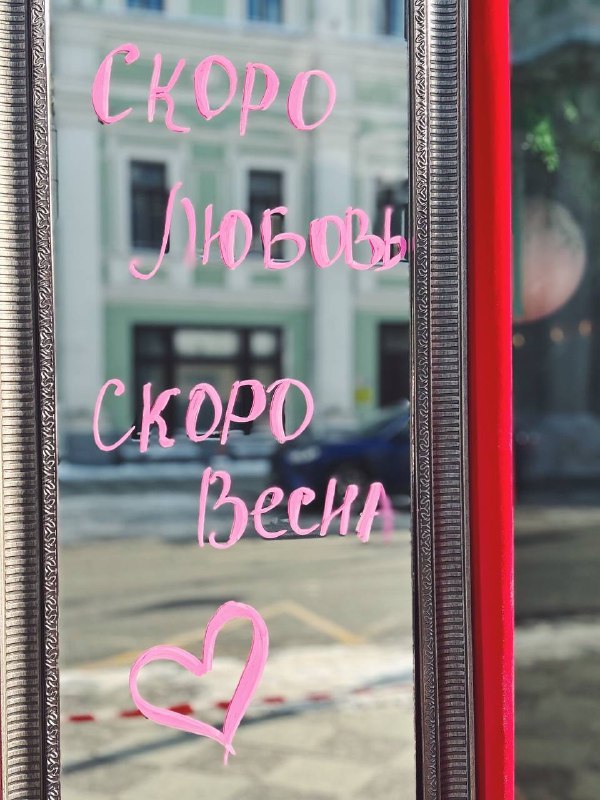 Скоро
Любовь
Скоро
Весна